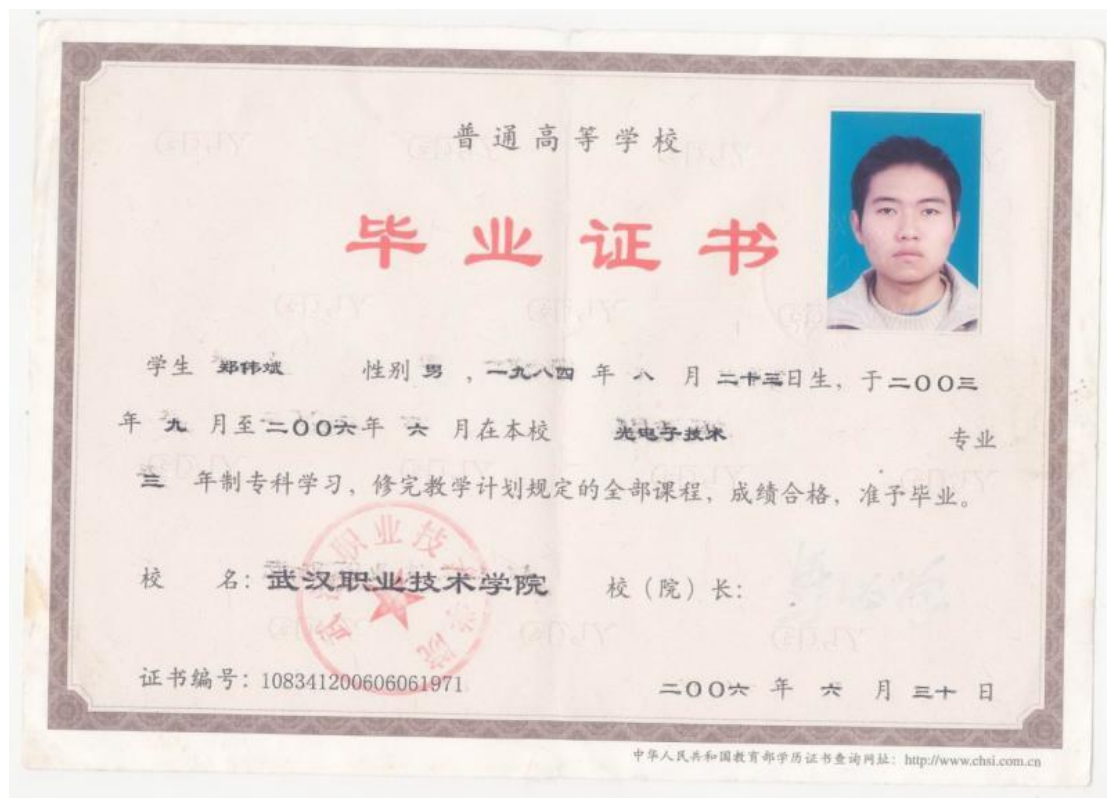 普通高等学校
毕业证书
学生 郑伟斌 性别 男 ，一九八四 年 八 月 二十三日生，于二00三
年 九 月至二00六年 六 月在本校 光电子技术 专业
三 年制专科学习，修完教学计划规定的全部课程，成绩合格，准予毕业。
校 名：武汉职业技术学院 校（院）长：
武汉职业技术学院
证书编号：108341200606061971 二00六 年 六 月 三十 日
中华人民共和国教育部学历证书查询网址：http://www.chsi.com.cn